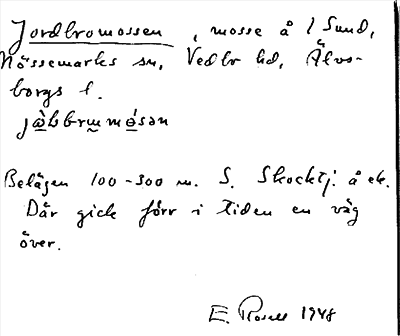 Jordbromossen, mosse å 1 Sund,
Nössemarks sn, Vedbo hd, Älvs-
borgs l.
jòbbrωmósan
Belägen 100-300 m. S. Skocktj. å ek.
Där gick förr i tiden en väg
över.
E. Rosell 1948